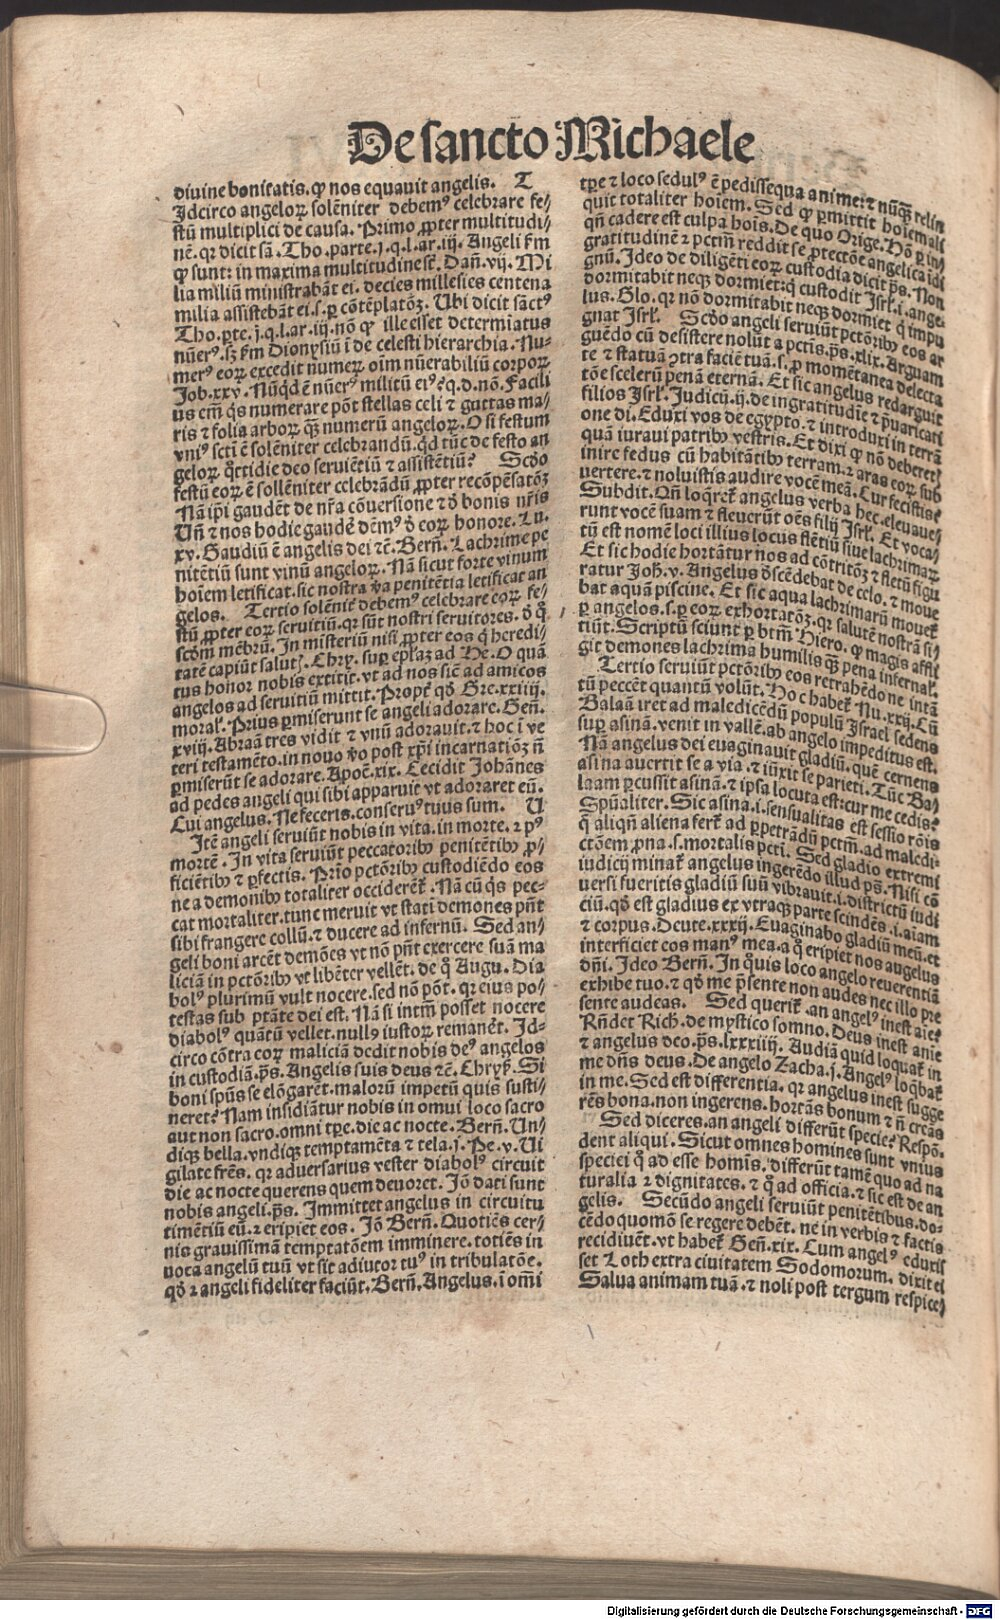 De sancto Michaele
diuine bonitatis. ꝙ nos equauit angelis. T
Idcirco angeloꝝ solēniter debemꝰ celebrare fe-
stū multiplici de causa. Primo ꝓpter multitudi-
nē. qꝛ dicit sā. Tho. parte. j. q. l. ar. iij. Angeli ẜm
ꝙ sunt: in maxima multitudine sē. Dañ. vij. Mi
lia miliū ministrabāt ei. decies millesies centena
milia assistebāt ei. s. ꝑ cōtēplatōꝫ. Ubi dicit sāctꝰ
Tho. ꝑte. j. q. l. ar. iij. nō ꝙ ille esset determīatus
nūerꝰ. sꝫ ẜm Dionysiū ī de celesti hierarchia. Nu-
merꝰ eoꝝ excedit numeꝝ oīm nūerabiliū corpoꝝ.
Job. xxv. Nūqͥd ē nūerꝰ militū eiꝰ? q. d. nō. Facili
us em̄ qͥs numerare pōt stellas celi ⁊ guttas ma-
ris ⁊ folia arboꝝ qꝫ numerū angeloꝝ. O si festum
vniꝰ scti ē solēniter celebrandū. qͥd tūc de festo an
geloꝝ qͦttidie deo seruiētiū ⁊ assistētiū? Scdo
festū eoꝝ ē sollēniter celebrādū ꝓpter recōpēsatōꝫ
Nā ip̄i gaudēt de nr̄a cōuersione ⁊ ꝺ̄ bonis nr̄is
Uñ ⁊ nos hodie gaudē dēmꝰ ꝺ̄ eoꝝ honore. Lu.
xv. Gaudiū ē angelis dei ⁊ē. Berñ. Lachrime pe
nitētiū sunt vinū angeloꝝ. Nā sicut forte vinum
hoiem letificat. sic nostra v̄a penitētia letificat an
gelos. Tertio solēnit̄ debemꝰ celebrare eoꝝ fe-
stū ꝓpter eoꝝ seruitiū. qꝛ sūt nostri seruitores. ꝺ̄ qͦ
scdm mēbrū. In misteriū nisi ꝓpter eos qͥ heredi-
tatē capiūt salutꝭ. Chry. suꝑ eplaꝫ ad He. O quā
tus honor nobis extitit. vt ad nos sicē ad amicos
angelos ad seruitiū mittit. Propt̄ qd̄ Gre. xxiiij.
moral. Prius ꝑmiserunt se angeli adorare. Geñ.
xviij. Abraā tres vidit ⁊ vnū adorauit. ⁊ hoc ī ve
teri testamēto. in nouo v̄o post xp̄i incarnatiōꝫ ñ
ꝑmiserūt se adorare. Apoc̄. xix. Cecidit Johānes
ad pedes angeli qui sibi apparuit vt adoraret eū.
Cui angelus. Ne feceris. conseruꝰ tuus sum. U
Itē angeli seruiūt nobis in vita. in morte. ⁊ pꝰ
mortē. In vita seruiūt peccatoribꝰ penitētibꝰ ꝓ-
ficiētibꝰ ⁊ ꝑfectis. Prio pctōribꝰ custodiēdo eos
ne a demonibꝰ totaliter occiderēt̄. Nā cū qͥs pec-
cat mortaliter. tunc meruit vt stati demones pn̄t
sibi frangere collū. ⁊ ducere ad infernū. Sed an-
geli boni arcēt demōes vt nō pn̄t exercere suā ma
liciā in pctōribꝰ vt libēter vellēt. de qͦ Augu. Dia
bolꝰ plurimū vult nocere. sed nō pōt. qꝛ eius po-
testas sub ptāte dei est. Nā si intm̄ posset nocere
diabolꝰ quātū vellet. nullꝰ iustoꝝ remanēt. Id-
circo cōtra eoꝝ maliciā dedit nobis deꝰ angelos
in custodiā. ps̄. Angelis suis deus ⁊ē. Chryst̄. Si
boni spūs se elōgarēt. malorū impetū quis susti-
neret? Nam insidiātur nobis in omni loco sacro
aut non sacro. omni tꝑe. die ac nocte. Berñ. Un-
diqꝫ bella. vndiqꝫ temptamēta ⁊ tela. j. Pe. v. Ui
gilate fr̄es. qꝛ aduersarius vester diabolꝰ circuit
die ac nocte querens quem deuoret. Iō dati sunt
nobis angeli. ps̄. Immittet angelus in circuitu
timētiū eū. ⁊ eripiet eos. Iō Berñ. Quotiēs cer-
nis grauissimā temptatōem imminere. totiēs in
uoca angelū tuū vt sit adiutor tuꝰ in tribulatōe.
qd̄ ⁊ angeli fideliter faciūt. Berñ. Angelus. ī omī
tꝑe ⁊ loco sedulꝰ ē pedissequa anime: ⁊ nūqꝫ relin
quit totaliter hoiem. Sed ꝙ ꝑmittit hoiem ali
qn̄ cadere est culpa hoīs. De quo Orige. Hō ꝑ in-
gratitudinē ⁊ pctm̄ reddit se ꝓtectōe angelica īdi
gnū. Ideo de diligēti eoꝝ custodia dicit ps̄. Non
dormitabit neqꝫ dormiet: qͥ custodit Isrl̄. i. ange
lus. Glo. qꝛ nō dormitabit neqꝫ dormiet qͥ impu
gnat Isrl̄. Scdo angeli seruiūt pctōribꝰ eos ar
guēdo cū desistere nolūt a pctīs. ps̄. xlix. Arguam
te ⁊ statuā ↄtra faciē tuā. s. ꝑ momētanea delecta
tōe scelerū penā eternā. Et sic angelus redarguit
filios Isrl̄. Judicū. ij. de ingratitudīe ⁊ p̄uaricati
one di. Eduxi vos de egypto. ⁊ introduxi in terrā
quā iuraui patribꝰ vestris. Et dixi ꝙ nō deberet̄
inire fedus cū habitātibꝰ terram. ⁊ aras eoꝝ sub
vertere. ⁊ noluistis audire vocē meā. Cur fecistis?
Subdit. Qn̄ loqͣret̄ angelus verba hec. eleuaue-
runt vocē suam ⁊ fleuerūt oēs filij Isrl̄. Et voca-
tū est nomē loci illius locus flētiū siue lachrimaꝝ
Et sic hodie hortātur nos ad cōtritōꝫ ⁊ fletū figu
ratur Joh̄. v. Angelus ꝺ̄scēdebat de celo. ⁊ moue
bat aquā piscine. Et sic aqua lachrimarū mouet̄
ꝑ angelos. s. ꝑ eoꝝ exhortatōꝫ. qꝛ salutē nostrā si-
tiūt. Scriptū sciunt ꝑ btm̄ Hiero. ꝙ magis affli
git demones lachrima humilis qꝫ pena infernal̄.
Tertio seruiūt pctōribꝰ eos retrahēdo ne intā
tū peccēt quantū volūt. Hoc habet̄ Nu. xxij. Cū
Balaā iret ad maledicēdū populū Israel sedens
suꝑ asinā. venit in vallē. ab angelo impeditus est.
Nā angelus dei euaginauit gladiū. quē cernens
asina auertit se a via. ⁊ iūxit se parieti. Tūc Ba-
laam ꝑcussit asinā. ⁊ ipsa locuta est: cur me cedis?
Spūaliter. Sic asina. i. sensualitas est sessio rōis
qͥ aliqn̄ aliena fert̄ ad ꝑpetrādū pctm̄. ad maledi-
ctōem ꝓna. s. mortalis pcti. Sed gladio extremi
iudicij minat̄ angelus ingerēdo illud ps̄. Nisi cō
uersi fueritis gladiū suū vibrauit. i. districtū iudi
ciū. qd̄ est gladius ex vtraqꝫ parte scindēs. i. aīam
⁊ corpus. Deute. xxxij. Euaginabo gladiū meū. et
interficiet eos manꝰ mea. a qͦ eripiet nos augelus
dn̄i. Ideo Berñ. In qͦuis loco angelo reuerentiā
exhibe tuo. ⁊ qd̄ me p̄sente non audes nec illo pre
sente audeas. Sed querit̄. an angelꝰ inest aīe?
Rn̄det Rich̄. de mystico somno. Deus inest anie
⁊ angelus deo. ps̄. lxxxiiij. Audiā quid loquat̄ in
me dn̄s deus. De angelo Zacha. j. Angelꝰ loqͣbat̄
in me. Sed est differentia. qꝛ angelus inest sugge
rēs bona. non ingerens. hortās bonum ⁊ ñ creās
Sed diceres. an angeli differūt specie? Respō.
dent aliqui. Sicut omnes homines sunt vnius
speciei qͦ ad esse homīs. differūt tamē quo ad na
turalia ⁊ dignitates. ⁊ qͦ ad officia. ⁊ sic est de an
gelis. Secūdo angeli seruiūt penitētibus. do-
cēdo quomō se regere debēt. ne in verbis ⁊ factis
recidiuēt. vt habet̄ Geñ. xix. Cum angelꝰ eduxis
set Loth extra ciuitatem Sodomorum. dixit ei
Salua animam tuā. ⁊ noli post tergum respice-
Digitalisierung gefördert durch die Deutsche Forschungsgemeinschaft - DFG